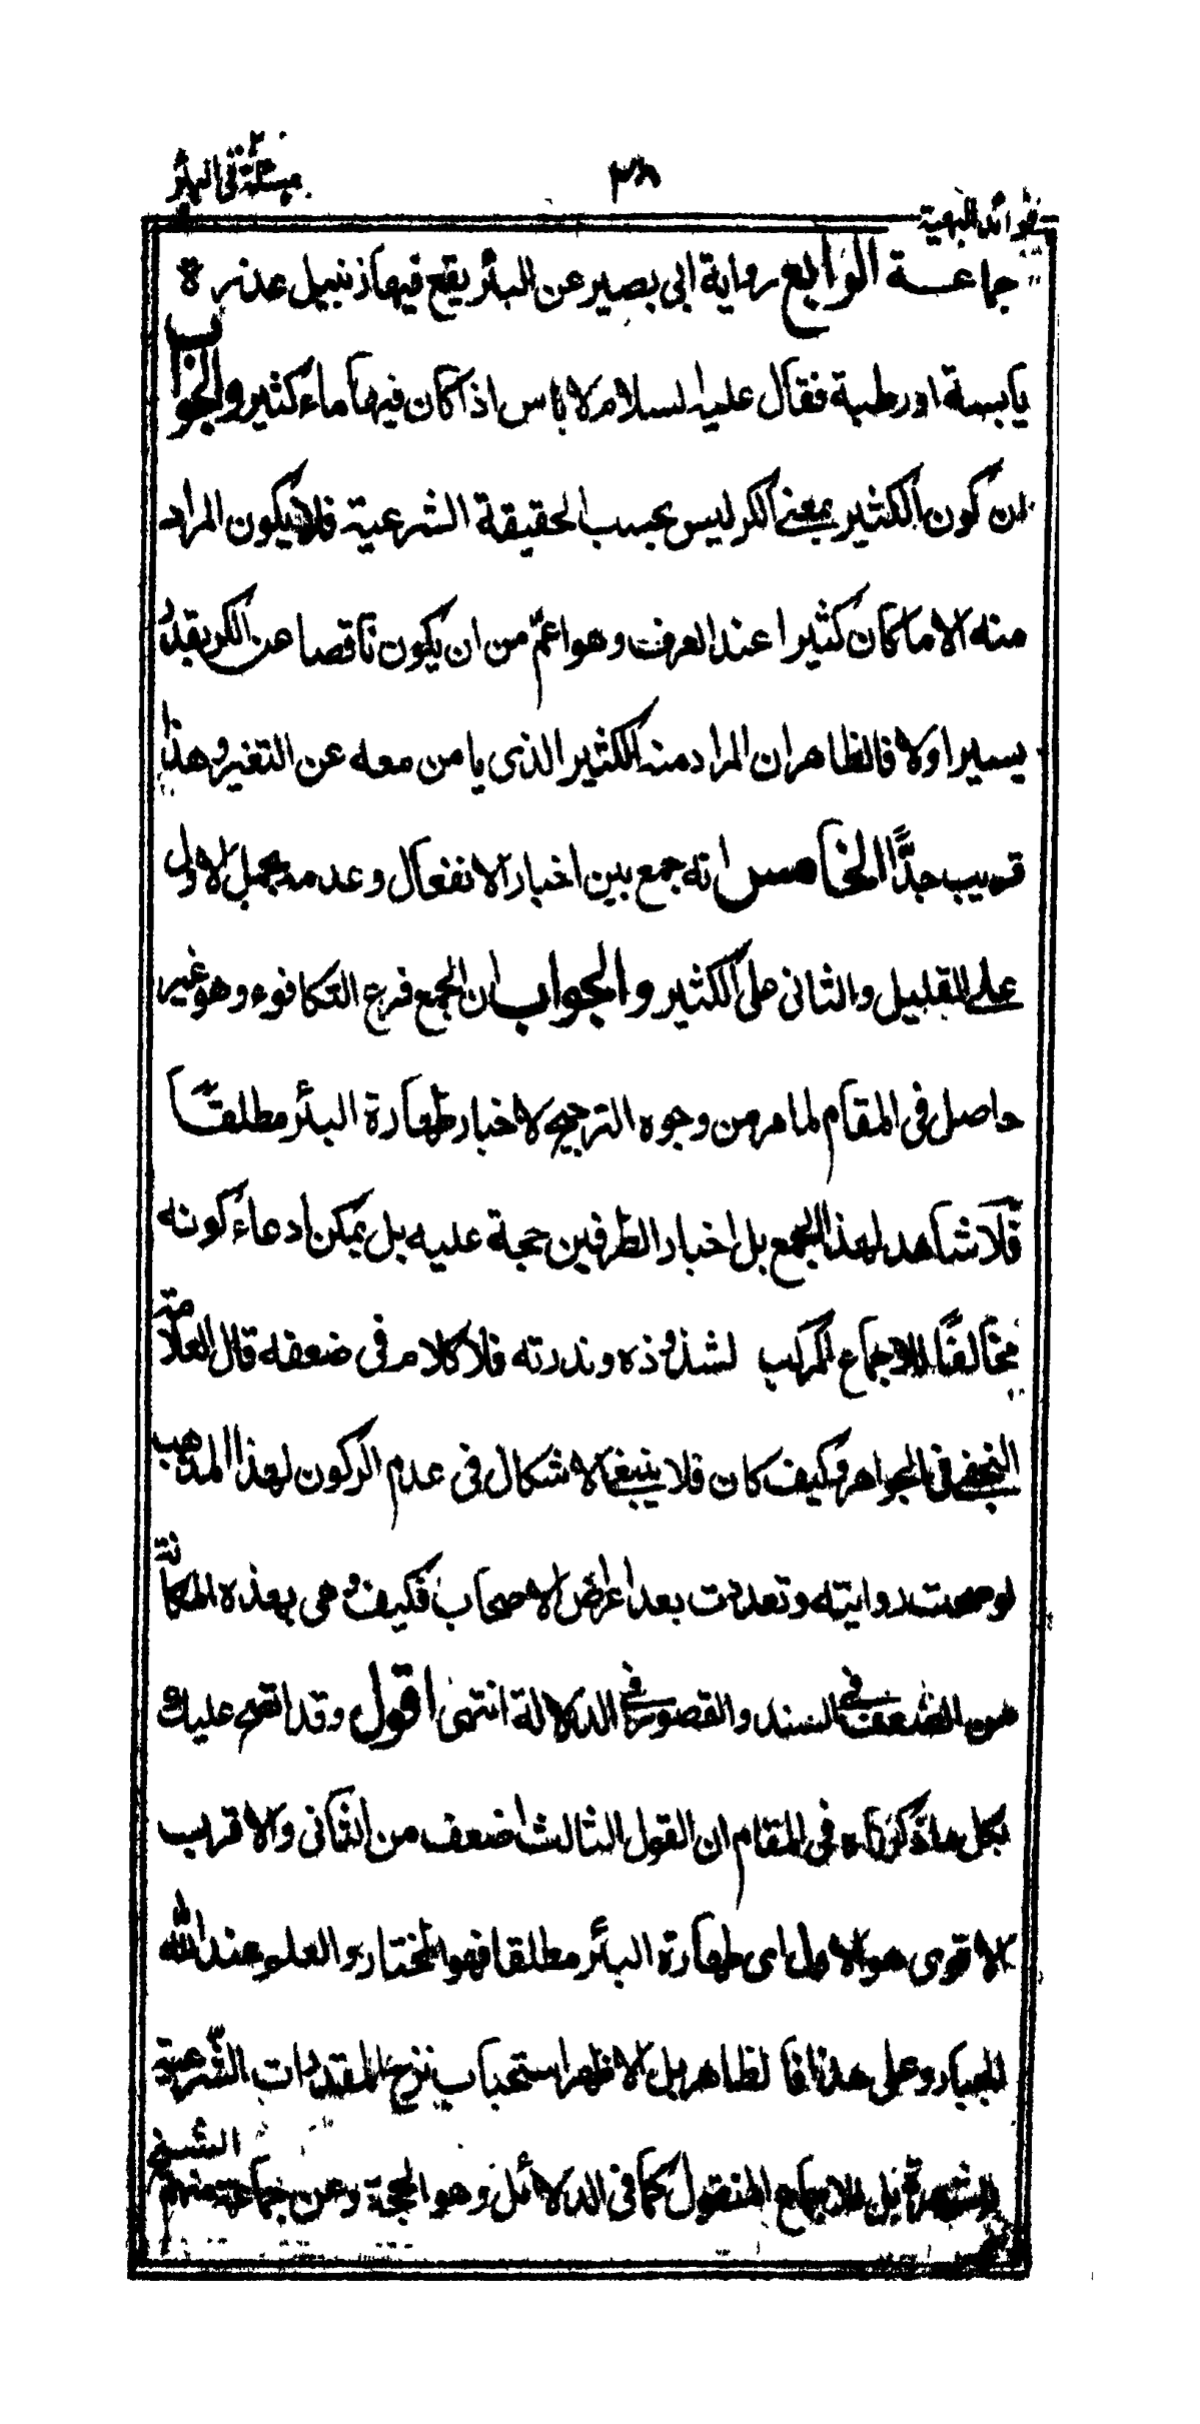 مسئلة فی البئر
٣٨
فوائد البهیة
جماعة الرابع روایة ابی بصیر عن البئر یقع فیها زنبیل عذرة
یابسة او رطبة فقال علیه السلام لا باس اذا کان فیها ماء کثیر والجواب
ان کون الکثیر بمعنی الکر لیس بحسب الحقیقة الشرعیة فلا یکون المراد
منه الا ما کان کثیرا عند العرف وهو اعمّ من ان یکون ناقصا عن الکر بقدر
یسیر اولا فالظاهر ان المراد منه الکثیر الذی یامن معه عن التغیر وهذا
قریب جدًّا الخامس انه جمع بین اخبار الانفعال وعدمه بحمل الاول
علی القلیل والثانی علی الکثیر والجواب ان الجمع فرع التکافوء وهو غیر
حاصل فی المقام لما مر من وجوه الترجیح لاخبار طهارة البئر مطلقًا
فلا شاهد لهذا الجمع بل اخبار الطرفین حجة علیه بل یمکن ادعاء کونه
مخالفًا للاجماع المرکب لشذوذه وندرته فلا کلام فی ضعفه قال العلامة
النجفی فی الجواهر وکیف کان فلا ینبغی الاشکال فی عدم الرکون لهذا المذهب
لو صحت روایته وتعددت بعد اعراض الاصحاب فکیف وهی بهذه المکانة
من الضعف فی السند والقصور فی الدلالة انتهی اقول وقد اتضح علیک
بکل ما ذکرناه فی المقام ان القول الثالث اضعف من الثانی والاقرب
الاقوی هو الاول ای طهارة البئر مطلقا فهو المختار والعلم عند الله
الجبار وعلی هذا فالظاهر بل الاظهر استحباب نزح المقدرات الشرعیة
للشهرة بل للاجماع المنقول کما فی الدلائل وهو الحجة وعن جماعة منهم الشیخ